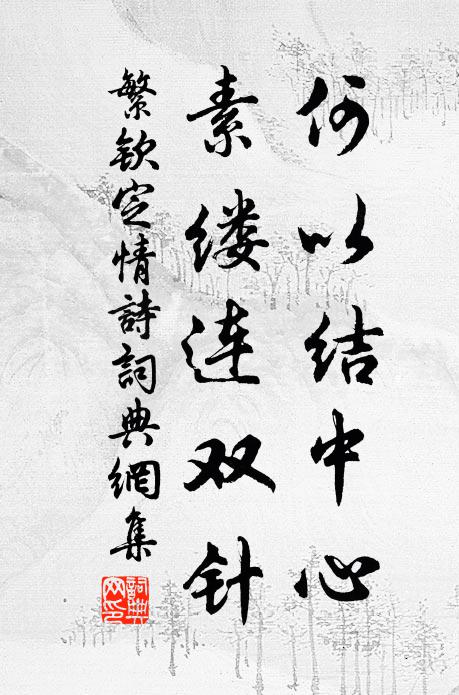 何以结中心
素缕连双针
繁欽定情詩詞典網集
詞典
网印